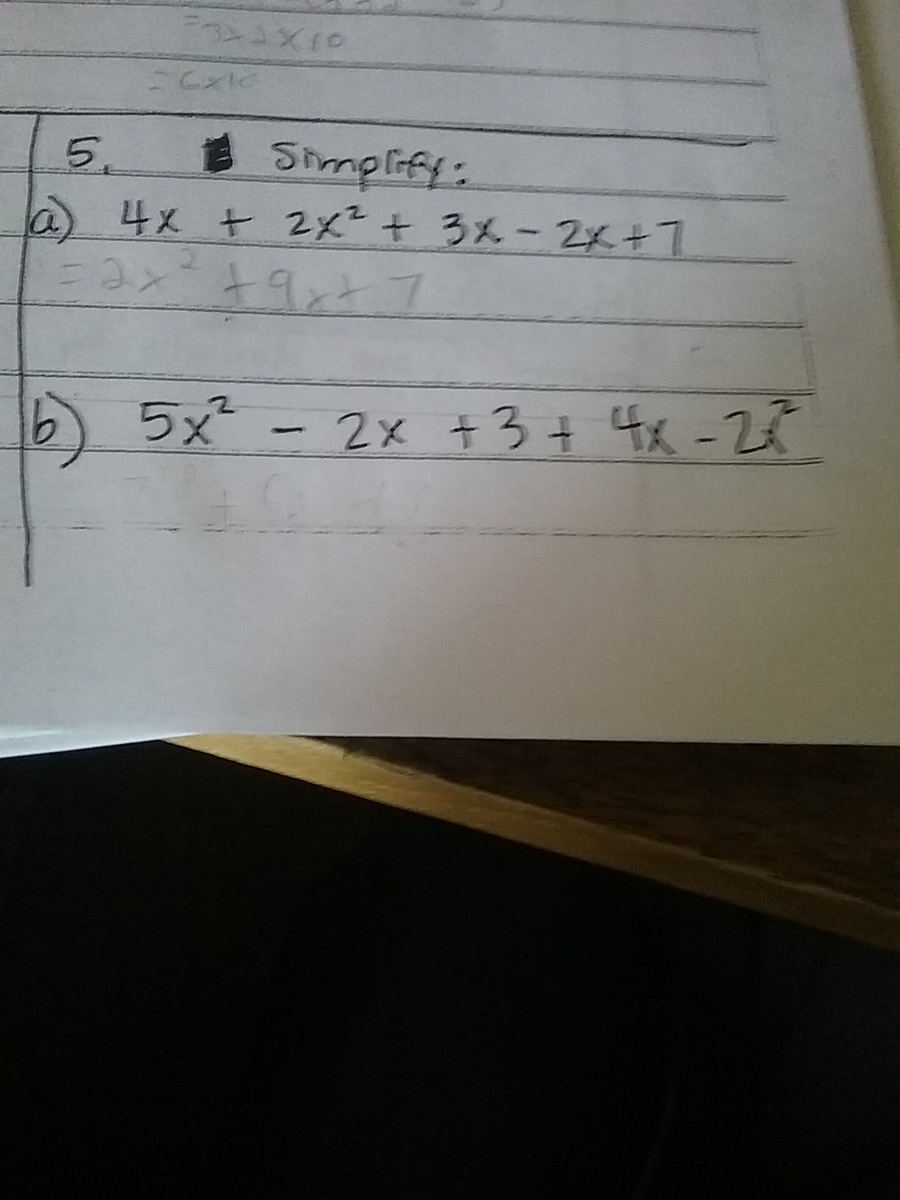 =3x2x10
=6x10
5. Simplify:
a) 4x + 2x² + 3x - 2x + 7
=2x² + 9x + 7
b) 5x² - 2x + 3 + 4x - 2x²